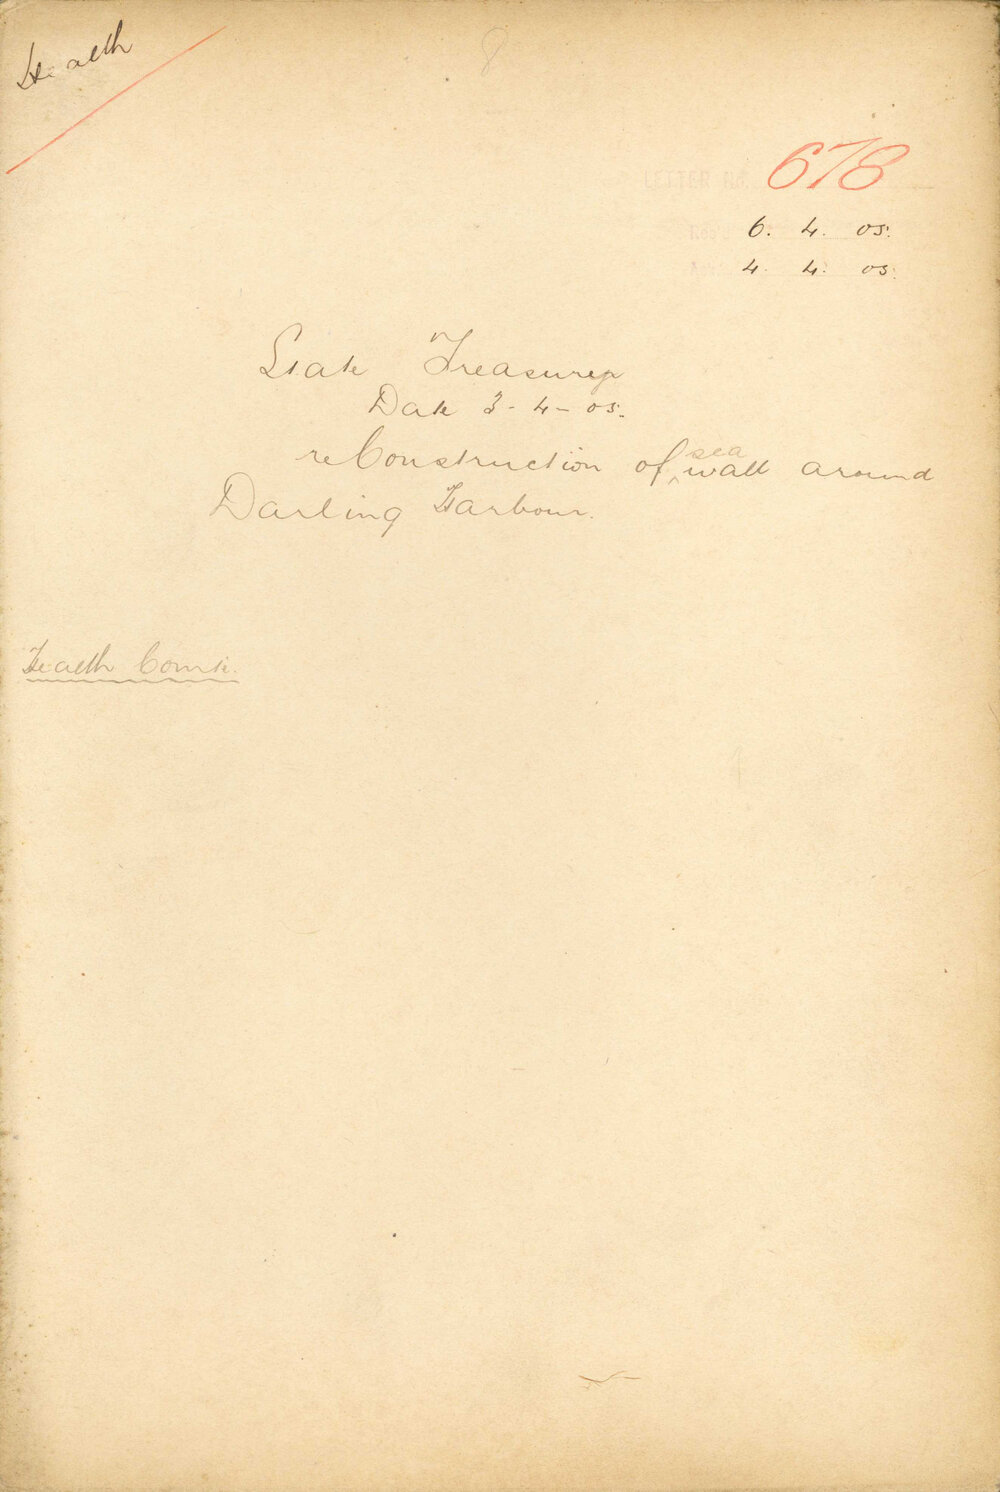 Health
LETTER No. 678
6. 4. 05.
4. 4. 05.
State Treasurer
Date 3-4-05.
re Construction of sea wall around
Darling Harbour.
Health Comte.